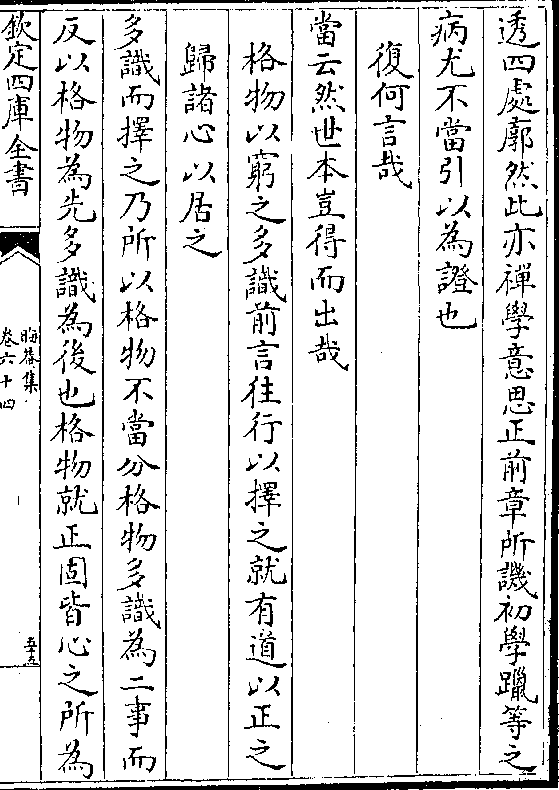 透四處廓然此亦禪學意思正前章所譏初學躐等之
病尤不當引以為證也
復何言哉
當云然世本豈得而出哉
格物以窮之多識前言往行以擇之就有道以正之
歸諸心以居之
多識而擇之乃所以格物不當分格物多識為二事而
反以格物為先多識為後也格物就正固皆心之所為
欽定四庫全書
晦菴集
卷六十四
五十五